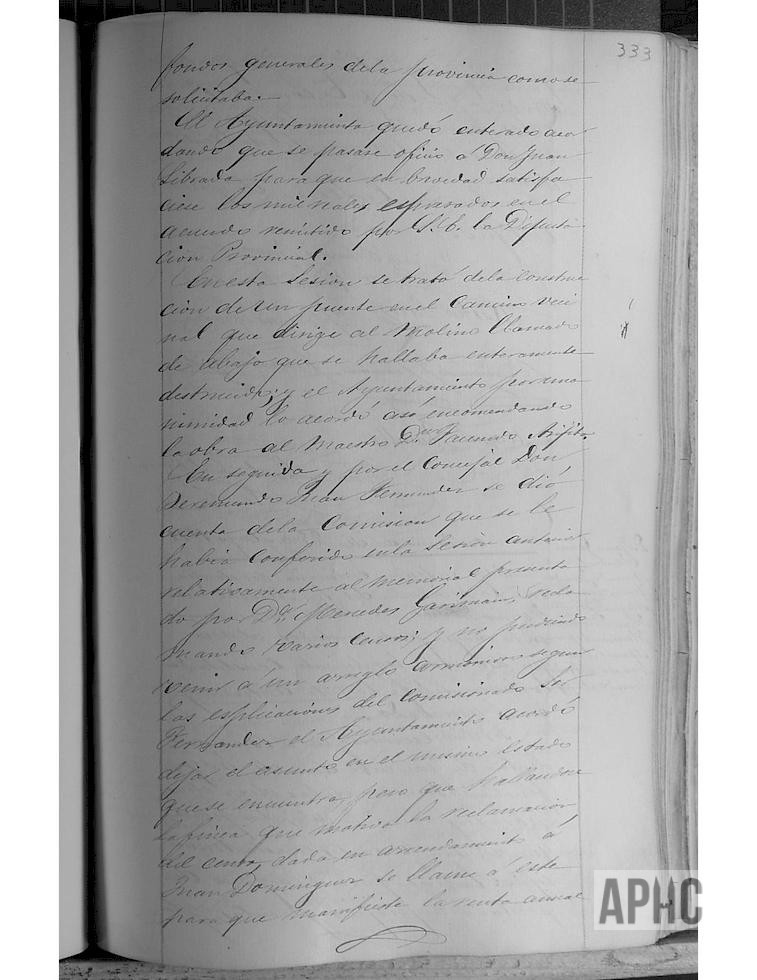 333
fondos generales dela provincia como se
solicitaba.
El Ayuntamiento quedó enterado acor
dando que se pasase oficio á Don Juan
Librada para que en brevedad satisfa
ciese los mil reales espresados en el
acuerdo remitido por S.E. la Diputa
cion Provincial.
En esta Sesion se trató dela construc
cion de un puente en el Camino veci
nal que dirige al Molino llamado
de abajo que se hallaba enteramente
destruido; y el Ayuntamiento por una
nimidad lo acordó asi encomendando
la obra al Maestro Dn Facundo
En seguida y por el Concejal Don
Veremundo Juan Fernandez se dió
cuenta dela Comision que se le
habia conferido en la Sesion anterior
relativamente al memorial presenta
do por Dª Mercedes recla
mando varios censos; y no pudiendo
venir á un arreglo armonioso segun
las esplicaciones del comisionado Sor
Fernandez el Ayuntamiento acordó
dejar el asunto en el mismo estado
que se encuentra, pero que hallandose
la finca que motiva la reclamacion
del censo, dada en arrendamiento á
Juan Dominguez se llame á este
para que manifieste la renta anual
APHC